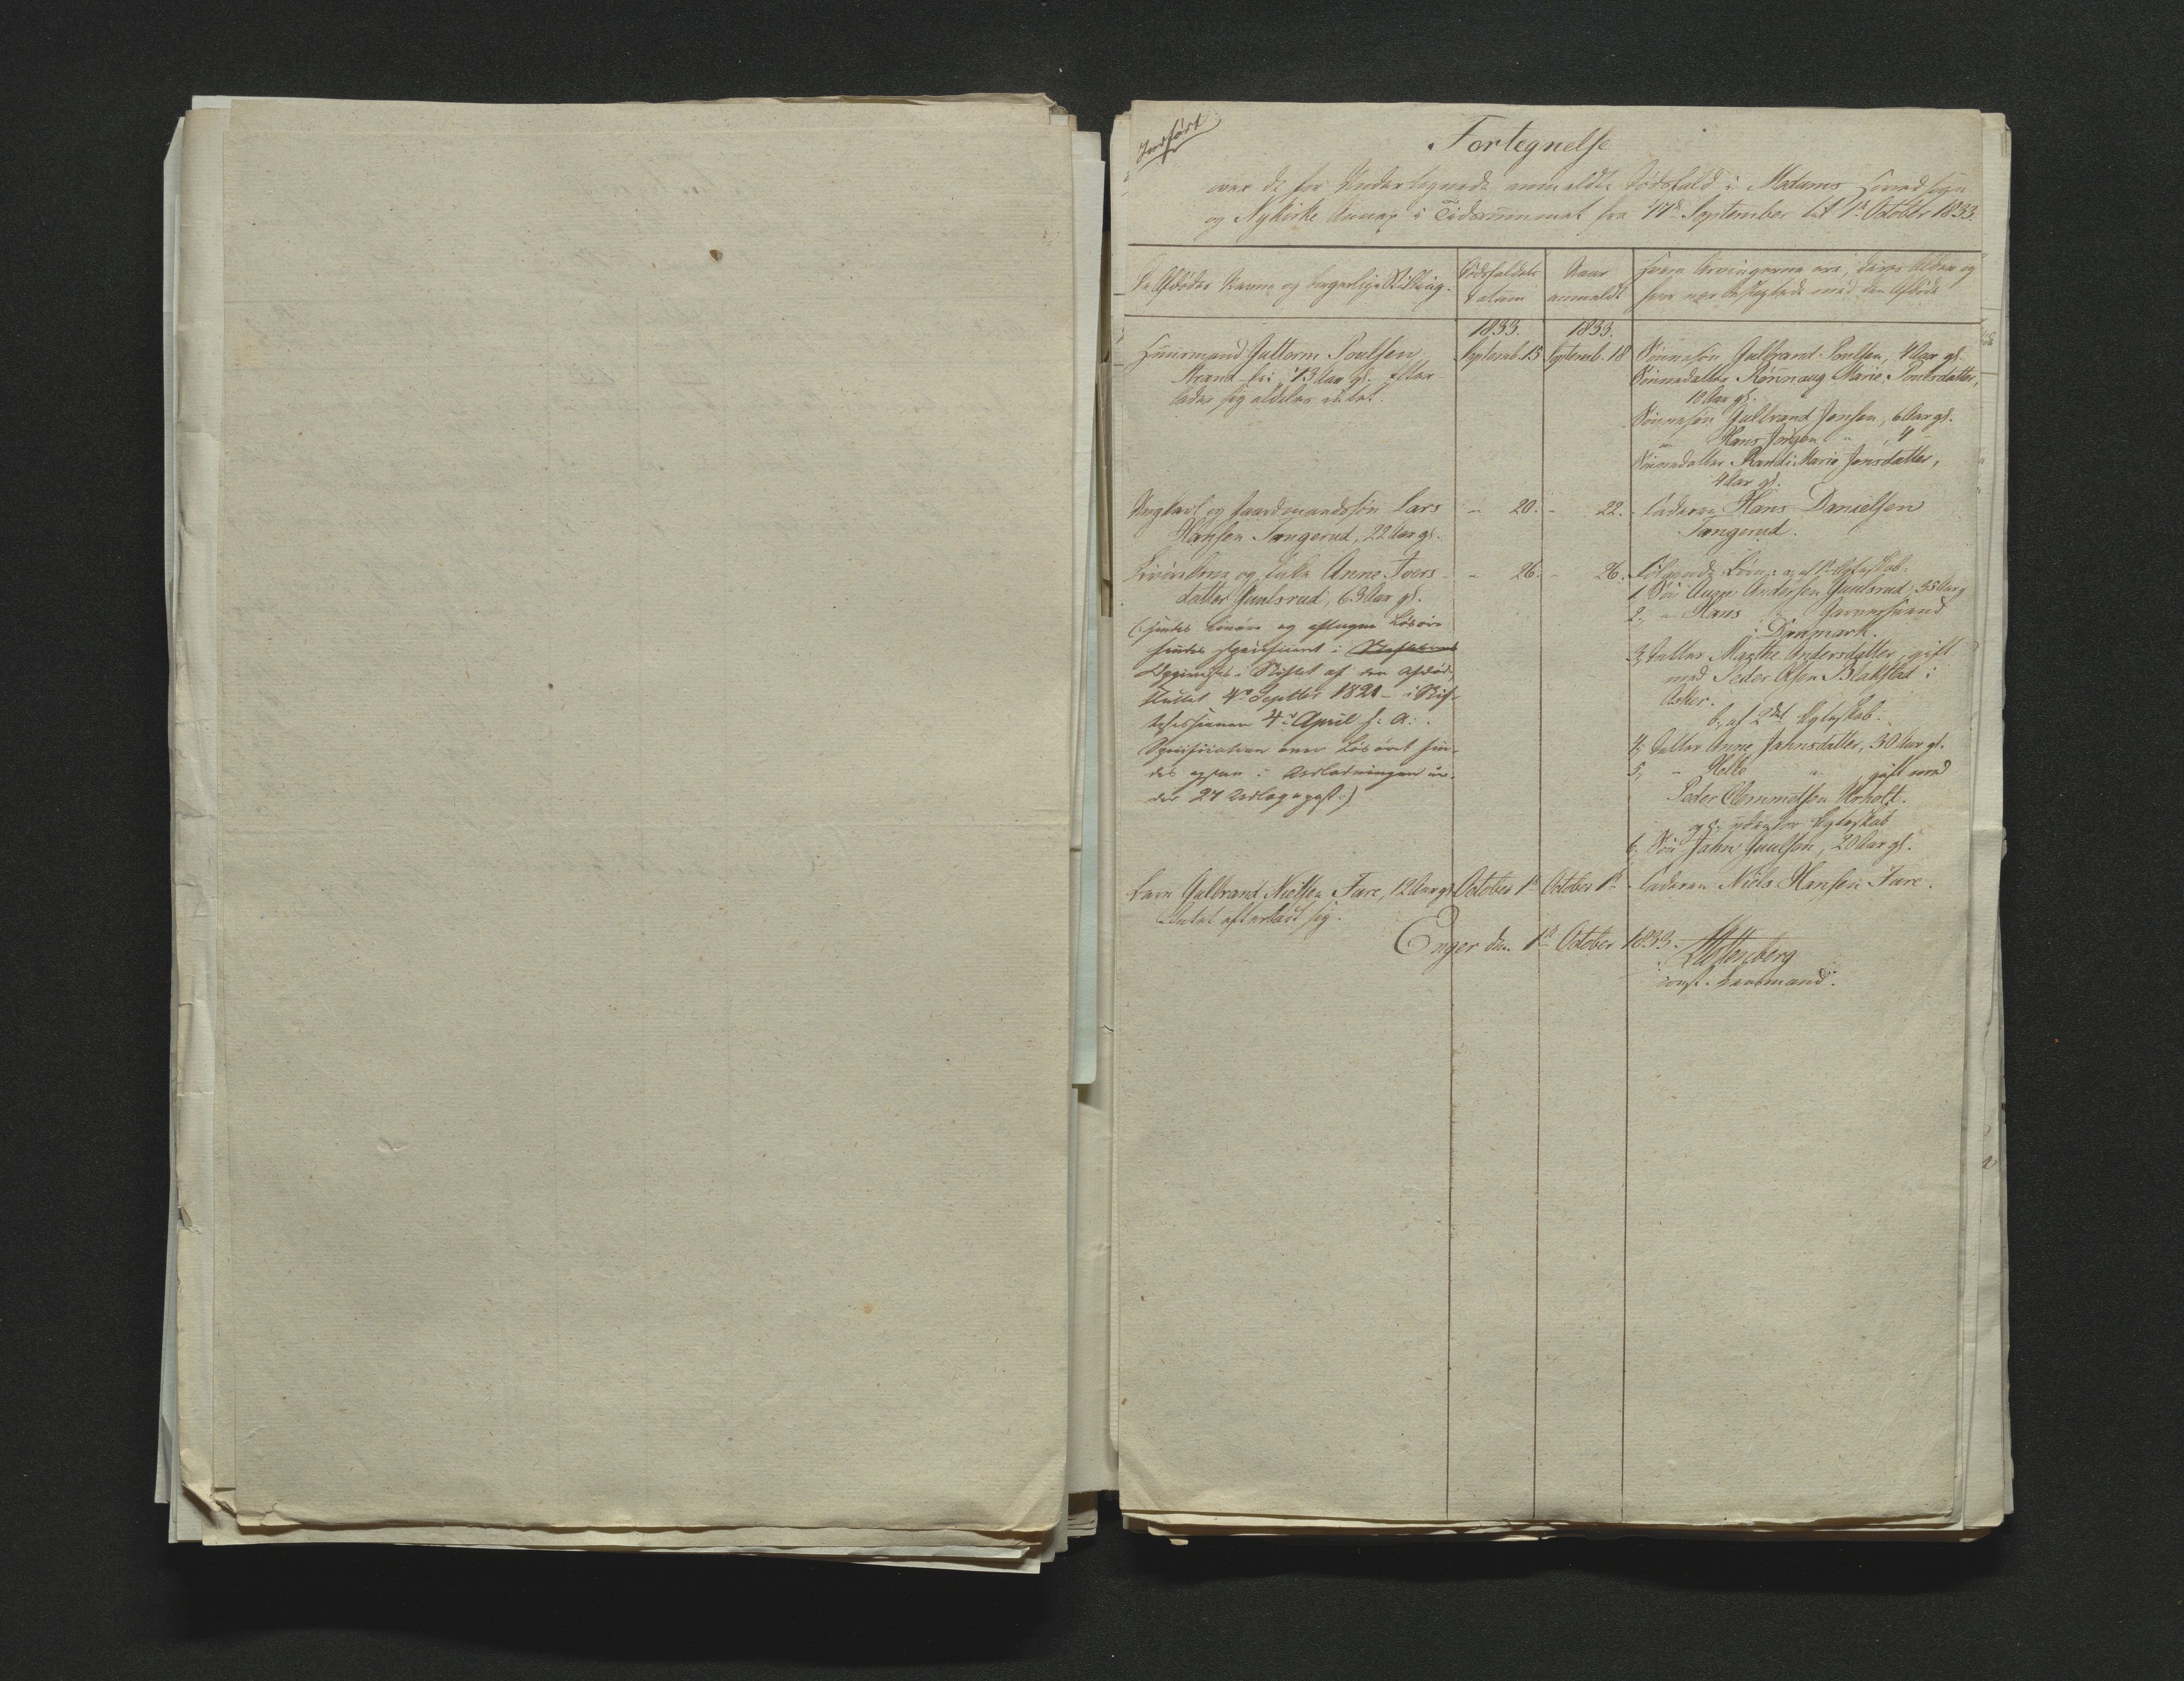 Indført
Fortegnelse
over de for Undertegnede anmeldte Dødsfald i Modums Hovedsogn
og Nykirke Annex i Tidsrummet fra 17de September til 1ste October 1833.
De Afdødes Navne og borgerlige Stilling.
Dødsfaldets
Datum
Naar
anmeldt
Hvem Arvingerne ere, deres Alder og
hvor nær beslægtede med den Afdøde
1833.
1833.
Huusmand Guttorm Poulsen
Strand-ei, 73 Aar gl. Efter-
lader sig aldeles intet.
Septemb. 15
Septemb. 18
Sønnesøn Gulbrand Poulsen, 4 Aar gl.
Sønnedatter Rønnaug Marie Poulsdatter,
10 Aar gl.
Sønnesøn Gulbrand Jensen, 6 Aar gl.
" Hans Jørgen " , 4 -
Sønnedatter Randi Marie Jensdatter,
4 Aar gl.
Ungkarl og Gaardmandssøn Lars
Hansen Tangerud, 22 Aar gl.
- 20.
- 22.
Faderen Hans Danielsen
Tangerud.
og Enke Anne Ivers-
datter Guulsrud, 63 Aar gl.
(: hendes og Løsøre
findes specificeret i
i Skiftet af den Afdøde,
sluttet 4de Septbr 1821 - i Skif-
4de April f: A: .
Specification over Løsøret fin-
des ogsaa i
der 27 :)
- 26.
- 26.
Følgende Børn: a, af 1ste Ægteskab:
1 Søn Anders Andersen Guulsrud, 35 Aar g
2, " Hans "
i Danmark.
3, Datter Marthe Andersdatter, gift
med Peder Olsen Blakstad i
Asker.
b, af 2det Ægteskab.
4, Datter Anne Jahnsdatter, 30 Aar gl.
5, " Helle " gift med
Peder
og, Ægteskab
6, Søn Jahn Guulsen, 20 Aar gl.
Barn Gulbrand Nielsen Fure, 12 Aar gl.
Intet efterladt sig.
October 1ste
October 1ste
Faderen Niels Hansen Fure.
Enger den 1ste October 1833.
const. Lensmand.